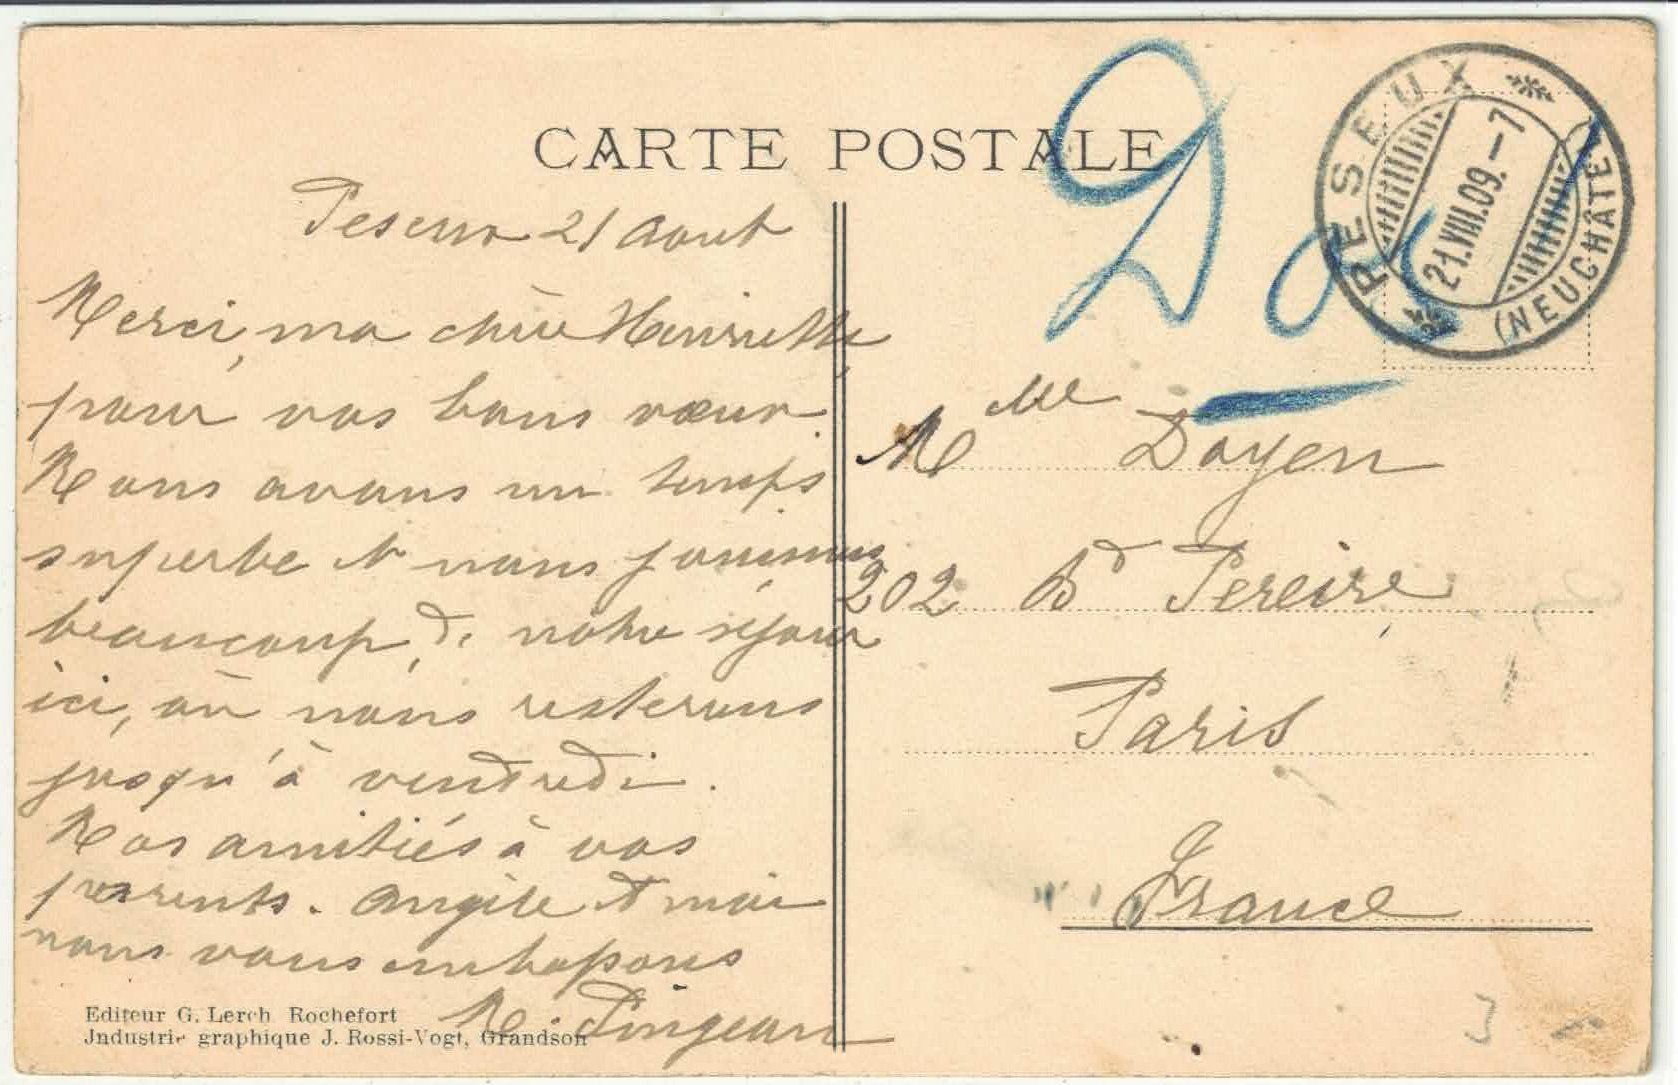 CARTE POSTALE
PESEUX
21.VIII.09.-7
(NEUCHÂTEL)
Peseux 21 Aout
Merci, ma chère Henriette,
pour vos bons vœux.
Nous avons un temps
superbe et nous jouissons
beaucoup de notre séjour
ici, où nous resterons
jusqu'à vendredi.
Nos amitiés à vos
parents. Angèle et moi
nous vous embrassons
N. Pingeon
Editeur G. Lerch Rochefort
Jndustrie graphique J. Rossi-Vogt, Grandson
Mlle Doyen
202 Bd Pereire
Paris
France
3